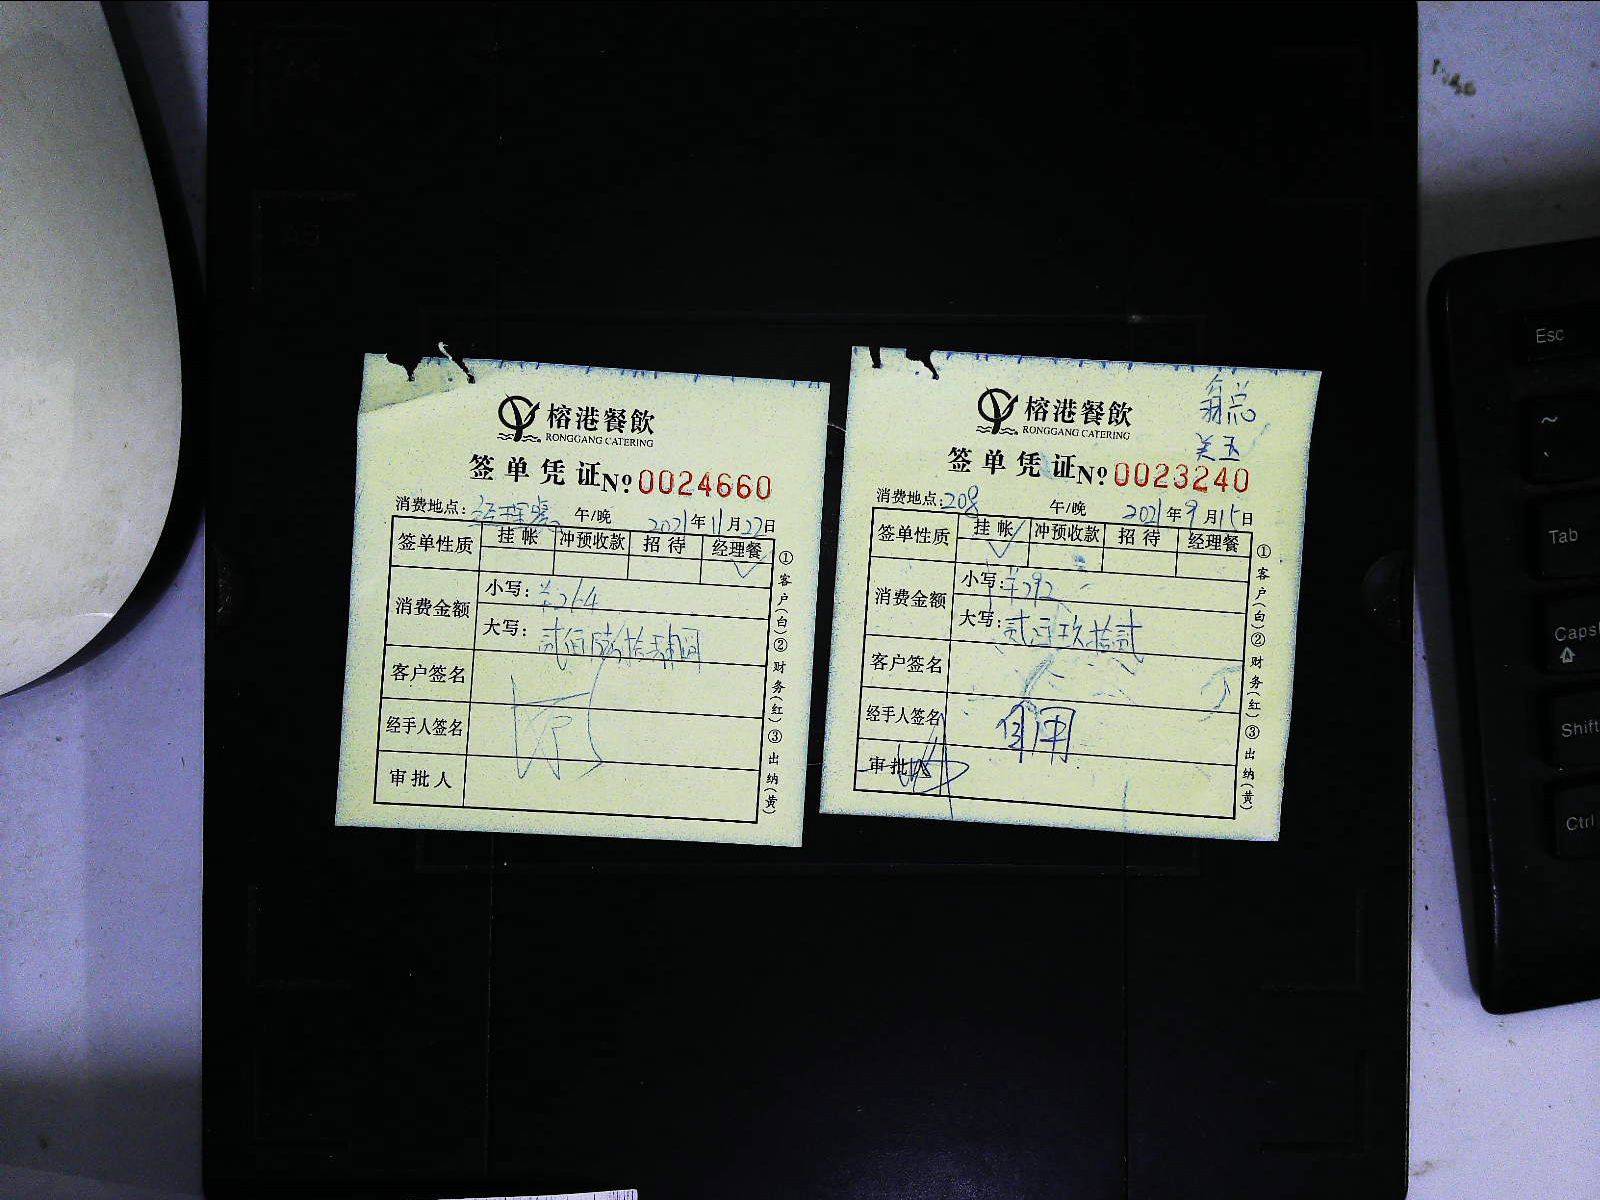 榕港餐飲
RONGGANG CATERING
签单凭证 №0024660
消费地点: 午/晚 2021年11月27日
签单性质 挂帐 冲预收款 招待 经理餐
消费金额 小写: ¥264
大写: 贰佰陆拾肆
客户签名
经手人签名
审批人
①客户(白)②财务(红)③出纳(黄)
榕港餐飲
RONGGANG CATERING
翁总
签单凭证 №0023240
消费地点:208 午/晚 2021年9月15日
签单性质 挂帐 冲预收款 招待 经理餐
消费金额 小写:¥292
大写: 贰佰玖拾贰
客户签名
经手人签名
审批人
①客户(白)②财务(红)③出纳(黄)
Esc
~
Tab
Caps
Shift
Ctrl